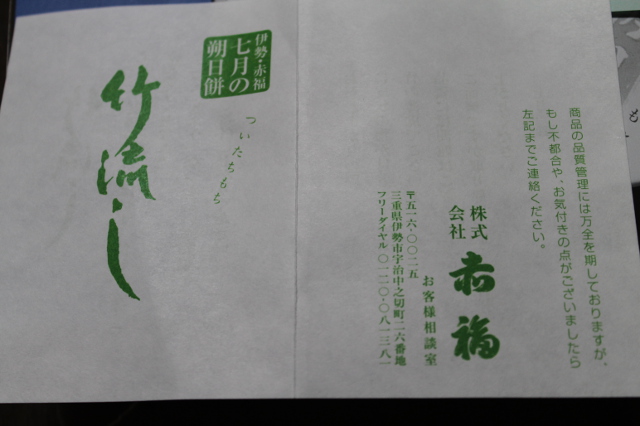 商品の品質管理には万全を期しておりますが、
もし不都合や、お気付きの点がございましたら
左記までご連絡ください。
株式会社 赤福
お客様相談室
〒五一六-〇〇二五
三重県伊勢市宇治中之切町二六番地
フリーダイヤル〇一二〇-〇八一三八一
伊勢・赤福
七月の
朔日餅
ついたちもち
竹流し